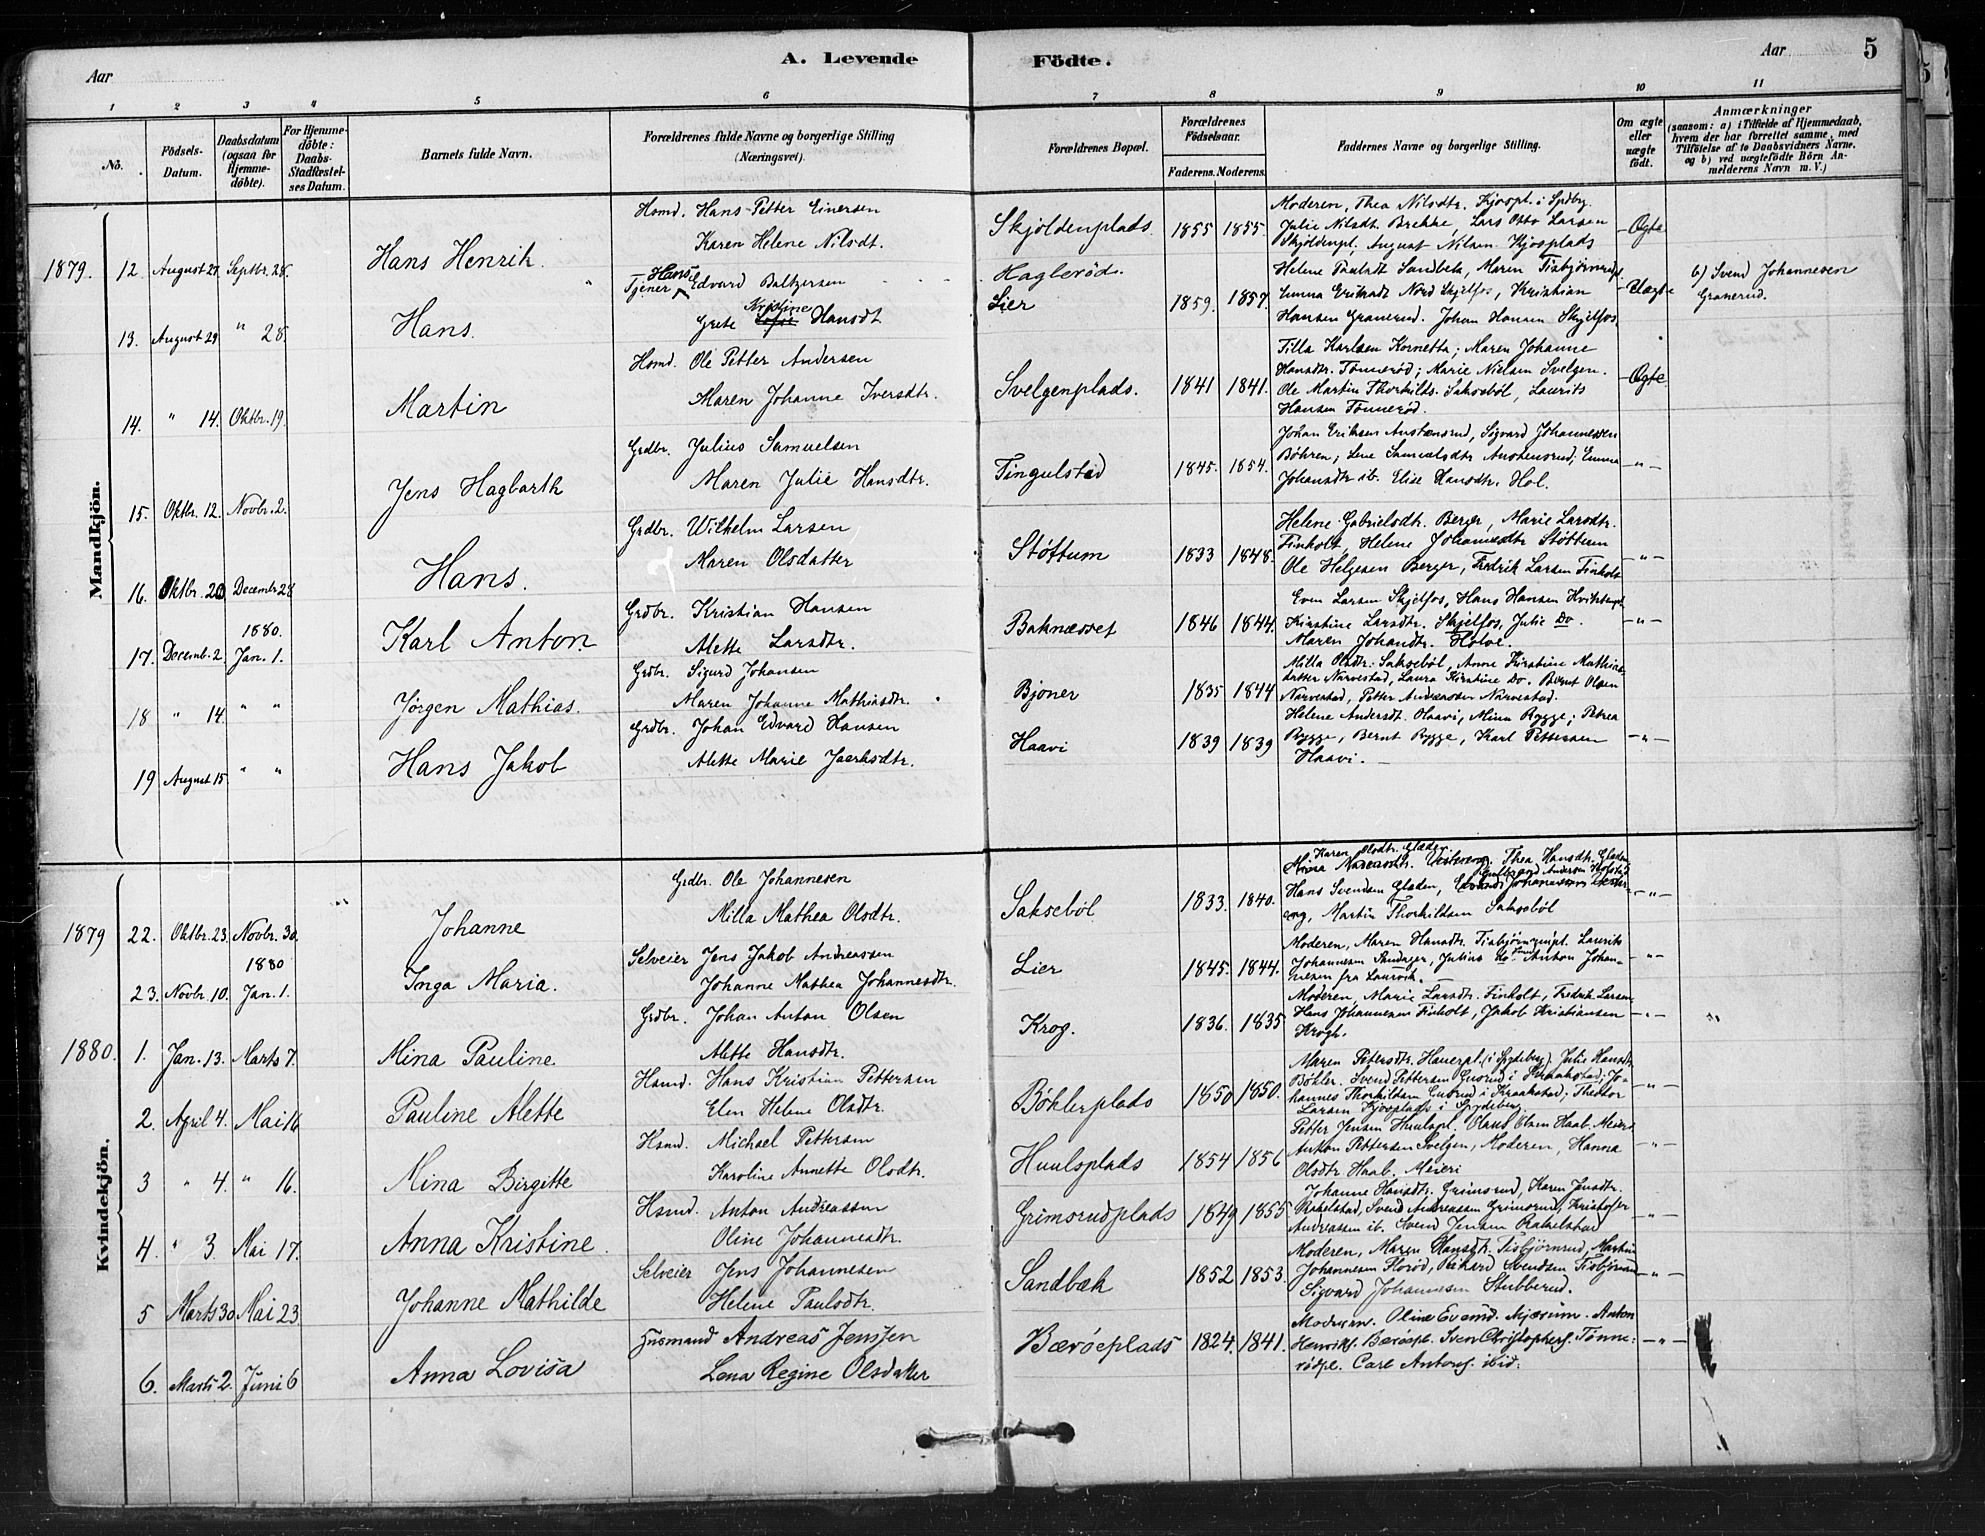 Aar
A. Levende
Födte.
Aar
5
1 2 3 4 5 6 7 8 9 10 11
No.
Födsels-Datum.
Daabsdatum (ogsaa for Hjemme-döbte).
For Hjemme-döbte: Daabs-Stadfæstel-ses Datum.
Barnets fulde Navn.
Forældrenes fulde Navne og borgerlige Stilling (Næringsvei).
Forældrenes Bopæl.
Forældrenes Födselsaar.
Faderens. Moderens.
Faddernes Navne og borgerlige Stilling.
Om ægte eller uægte födt.
Anmærkninger
(saasom: a) i Tilfælde af Hjemmedaab,
hvem der har forrettet samme, med
Tilföielse af to Daabsvidners Navne,
og b) ved uægtefödte Börn An-
melderens Navn m. V.)
Mandkjön.
1879. 12. August 27. Septbr. 28. Hans Henrik.
Hsmd. Hans Petter Einersen
Karen Helene Nilsdt.
Skjöldenplads. 1855 1855.
Moderen, Thea Nilsdtr. Kjospl. i Spdbg.
Julie Nilsdt. Brekke, Lars Otto Larsen
Skjöldenpl., August Nilsen Kjosplads
Ægte
13. August 29. " 28. Hans.
Tjener Hans Edvard Baltzersen
Grete Kristine Hansdt
Haglerød.
Lier 1859. 1857.
Helene Paulsdt Sandbek, Maren Tisbjørnrud
Emma Eriksdt Nord Skjelfos, Kristian
Hansen Granerud. Johan Hansen Skjelfos.
Uægte
b) Svend Johannesen
Granerud.
14. " 14. Oktbr. 19. Martin
Hsmd. Ole Petter Andersen
Maren Johanne Iversdtr.
Svelgenplads. 1841 1841.
Tilla Karlsen Kornetta; Maren Johanne
Hansdtr. Tønnerød; Marie Nielsen Svelgen.
Ole Martin Thorkilds. Saksebøl, Laurits
Hansen Tønnerød.
Ægte
15. Oktbr. 12. Novbr. 2. Jens Hagbarth
Grdbr. Julius Samuelsen
Maren Julie Hansdtr.
Tingulstad 1845. 1854.
Johan Eriksen Austensrud, Sigvard Johannessen
Bøhren; Lene Samuelsdtr Austensrud; Emma
Johansdtr ib. Elise Hansdtr. Hol.
-"-
16. Oktbr. 20 Decembr 28 Hans.
Grdbr. Wilhelm Larsen
Maren Olsdatter
Støttum 1833 1848.
Helene Gabrielsdtr. Berger, Marie Larsdtr.
Finholt, Helene Johannesdtr Støttum
Ole Helgesen Berger, Fredrik Larsen Finholt
-"-
1880.
17. Decemb. 2. Jan. 1. Karl Anton
Grdbr. Kristian Hansen
Alette Larsdtr.
Baknæsset 1846 1844.
Even Larsen Skjelfos, Hans Hansen
Kirstine Larsdtr. Skjelfos, Julie Do.
Maren Johandtr. Holve.
-"-
18 " 14. " " Jörgen Mathias.
Grdbr. Sigurd Johansen
Maren Johanne Mathiasdtr.
Bjoner 1835 1844
Milla Olsdtr. Saksebøl, Anne Kirstine Mathias-
datter Narvestad, Laura Kirstine Do. Bernt Olsen
Narvestad, Petter Andreassen Narvestad.
19 August 15. " " Hans Jakob
Grdbr. Johan Edvard Hansen
Alette Marie
Haavi 1839 1839
Helene Andersdt. Haavi, Mina Rygge; Petrea
Rygge, Bernt Rygge, Karl Pettersen
Haavi.
-"-
Kvindekjön.
1879 22. Oktbr. 23. Novbr. 30. Johanne
Grdbr. Ole Johannesen
Milla Mathea Olsdtr.
Saksebøl 1833. 1840.
Karen Olsdtr. Gladen.
Thea Hansdtr. Gladen
Hans Svendsen Gladen,
eng, Martin Thorkildsen Saksebøl
-"-
1880
23. Novbr. 10. Jan. 1. Inga Maria.
Selveier Jens Jakob Andreassen
Johanne Mathea Johannesdtr.
Lier 1845. 1844.
Moderen, Maren Hansdtr. Laurits
Johannesen Julius Anton Johan-
nesen fra Laurvik.
-"-
1880. 1. Jan. 13. Marts 7. Mina Pauline.
Grdbr. Johan Anton Olsen
Alette Hansdtr.
Krog. 1836. 1835
Moderen, Marie Larsdtr. Finholt, Fredrik Larsen
Hans Johannesen Finholt, Jakob Kristiansen
Krogh.
-"-
2. April 4. Mai 16 Pauline Alette
Hsmd. Hans Kristian Pettersen
Elen Helene Olsdtr.
Bøhlerplads 1850 1850.
Maren Petersdtr. Hauerpl. (i Spydeberg) Julie Hansdtr
Bøhler. Svend Pettersen Gusrud i Kraakstad; Jo-
hannes Thorkildsen Gusrud i Kraakstad; Theodor
Larsen Kjosplads i Spydeberg.
-"-
3 " 4. " 16. Mina Birgitte
Hsmd. Michael Pettersen
Karoline Annette Olsdtr.
Huulsplads 1854 1856
Petter Jensen Huulspl. Olaus Olsen Haab. Meieri
Anton Pettersen Svelgen, Moderen, Hanna
Olsdtr Haab. Meieri
-"-
4. " 3. Mai 17. Anna Kristine.
Hsmd. Anton Andreassen
Oline Johannesdtr.
Grimsrudplads 1849 1855
Johanne Hansdtr. Grimsrud, Karen Jensdtr.
Rakelstad, Svend Andreassen Grimsrud, Kristofer
Andreassen ib. Svend Jensen Rakelstad
-"-
5 Marts 30 Mai 23 Johanne Mathilde
Selveier Jens Johannesen
Helene Paulsdtr.
Sandbæk 1852 1853.
Moderen, Maren Hansdtr. Tisbjørnrud, Martin
Johannesen Florød, Rikard Svendsen Tisbjørnrud
Sigvard Johannesen Stubberud.
-"-
6. Marts 2. Juni 6 Anna Lovisa
Husmand Andreas Jenssen
Lena Regine Olsdatter
Bærøeplads 1824. 1841.
Moderen. Oline Evensd. Mjærum. Anton
Henriks. Bærøepl. Sven Christophers. Tønne-
rødpl. Carl Antons. ibid:
-"-